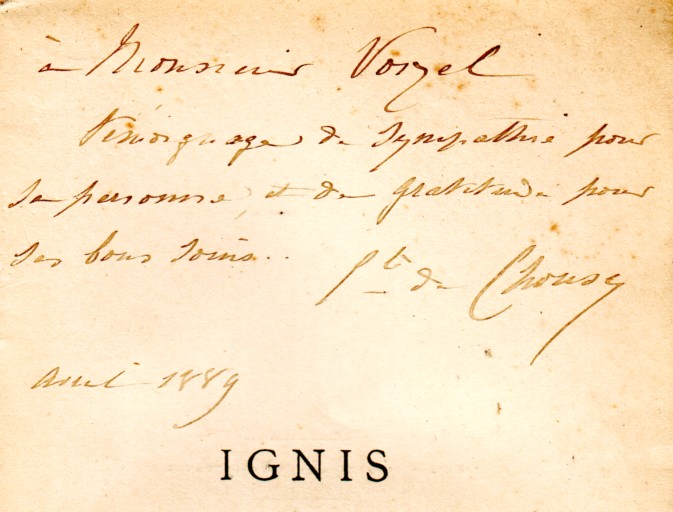 à Monsieur Vorzel
Témoignage de sympathie pour
sa personne, et de gratitude pour
ses bons soins..
Cte de Chousy
Avril 1889
IGNIS